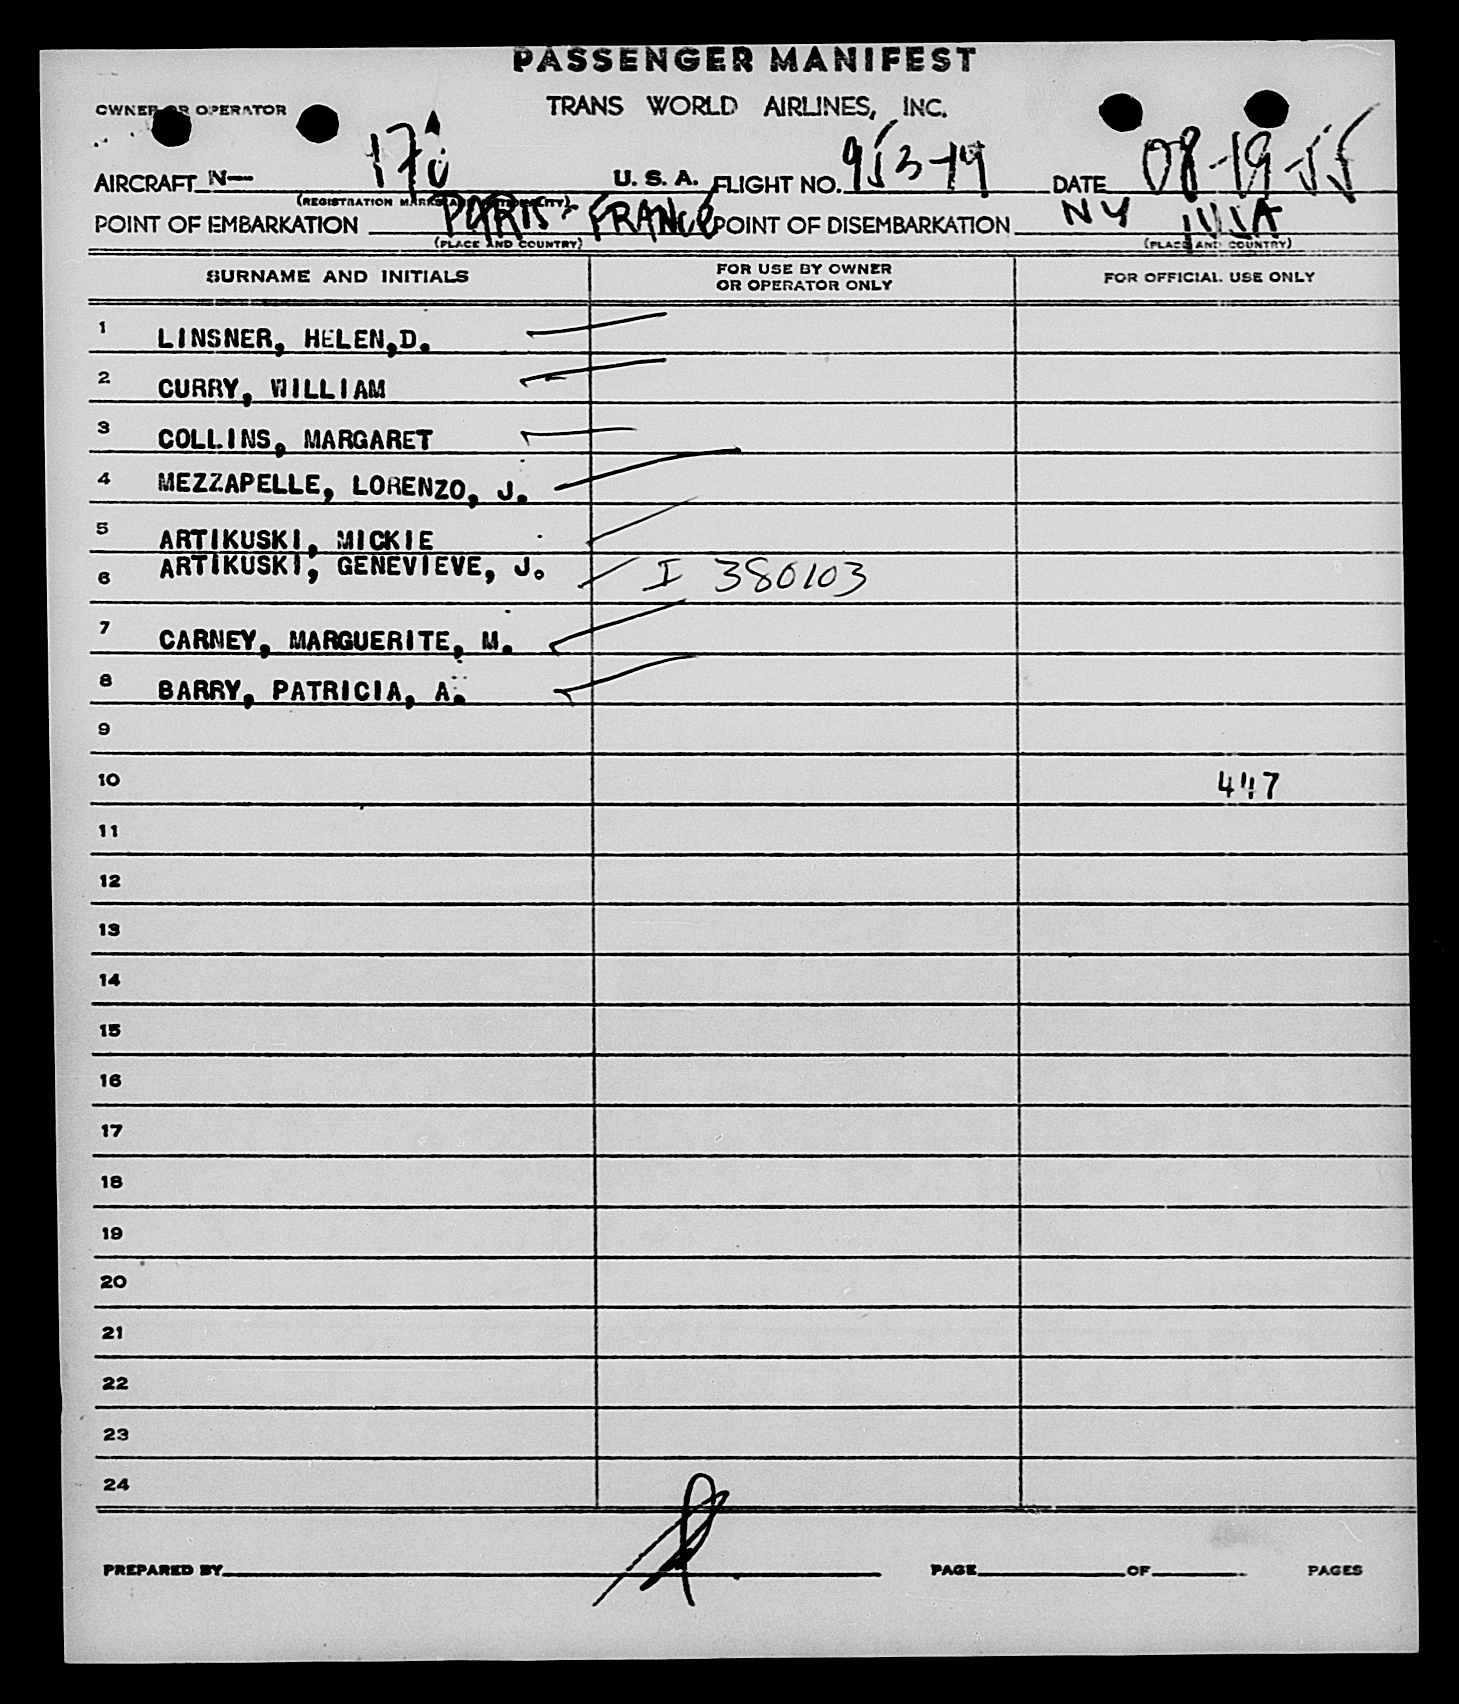 PASSENGER MANIFEST
OWNER OR OPERATOR TRANS WORLD AIRLINES, INC.
AIRCRAFT N— U. S. A. FLIGHT NO. 953-19 DATE 08-19-55
(REGISTRATION MARKS AND NATIONALITY)
POINT OF EMBARKATION PARIS - FRANCE POINT OF DISEMBARKATION NY USA
(PLACE AND COUNTRY) (PLACE AND COUNTRY)
SURNAME AND INITIALS FOR USE BY OWNER OR OPERATOR ONLY FOR OFFICIAL USE ONLY
1 LINSNER, HELEN,D.
2 CURRY, WILLIAM
3 COLLINS, MARGARET
4 MEZZAPELLE, LORENZO, J.
5 ARTIKUSKI, MICKIE
6 ARTIKUSKI, GENEVIEVE, J. I 380103
7 CARNEY, MARGUERITE, M.
8 BARRY, PATRICIA, A.
9
10 447
11
12
13
14
15
16
17
18
19
20
21
22
23
24
PREPARED BY PAGE OF PAGES